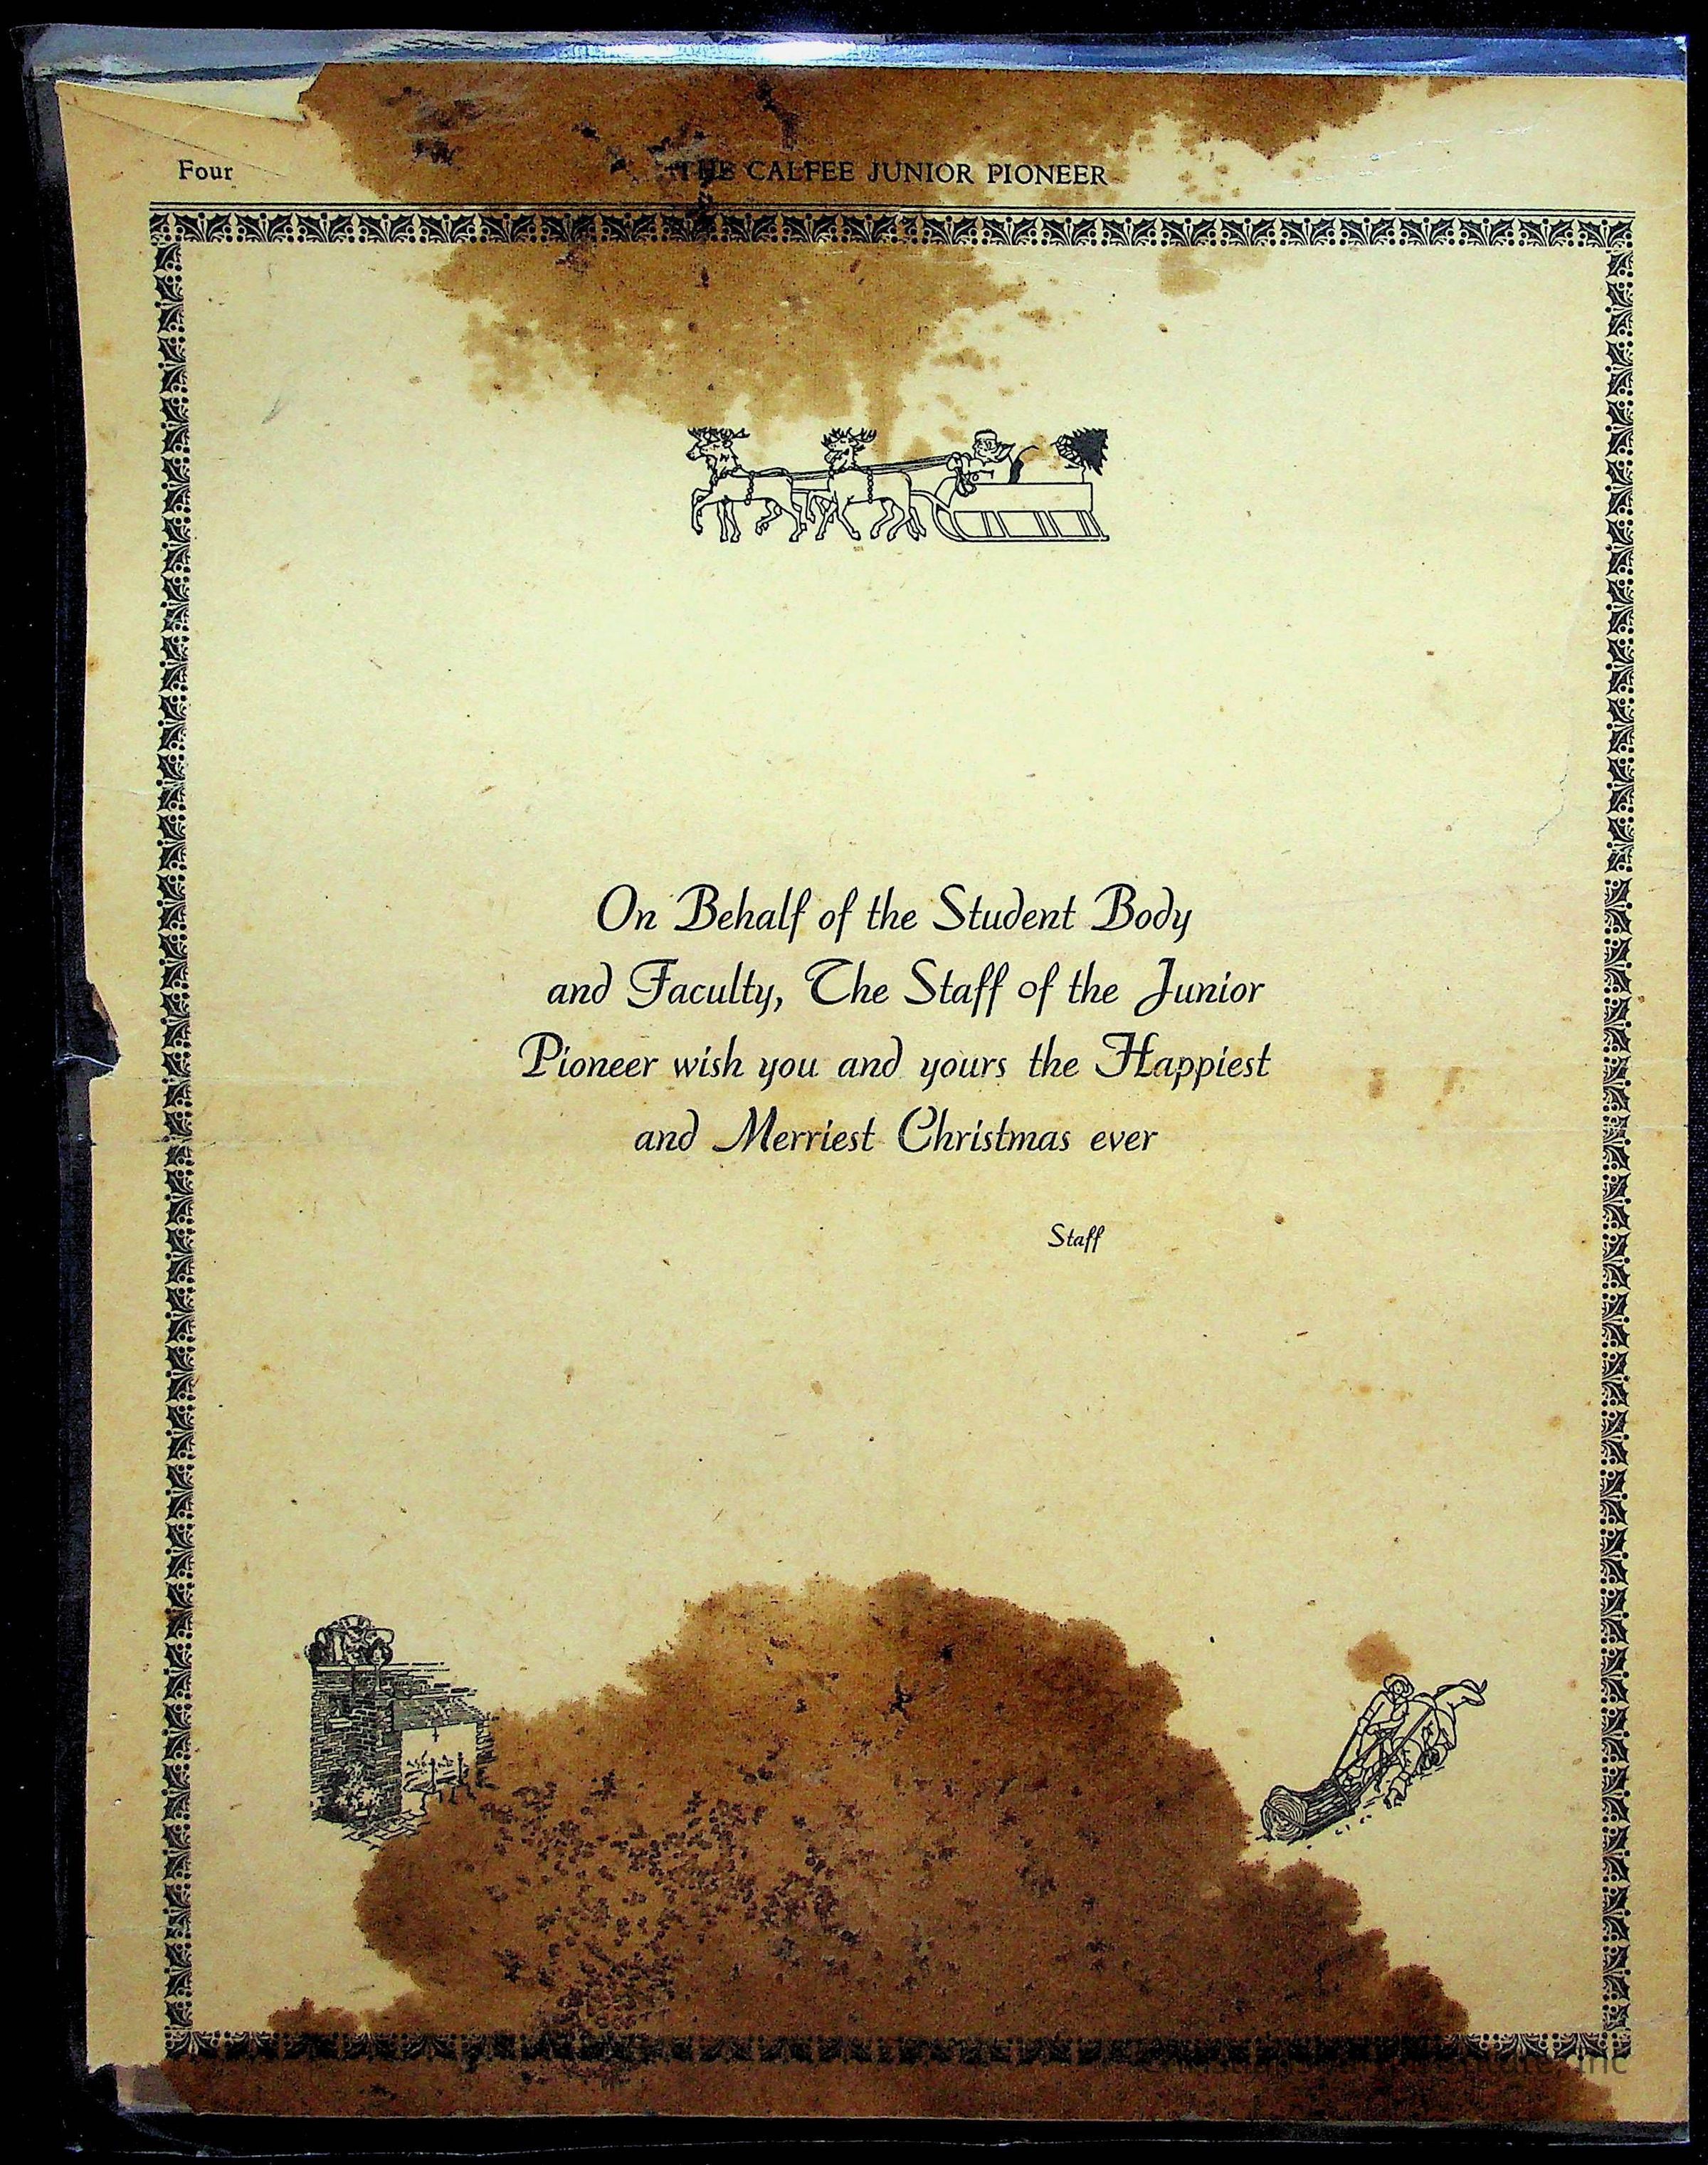 Four
THE CALFEE JUNIOR PIONEER
On Behalf of the Student Body
and Faculty, The Staff of the Junior
Pioneer wish you and yours the Happiest
and Merriest Christmas ever
Staff
Inc